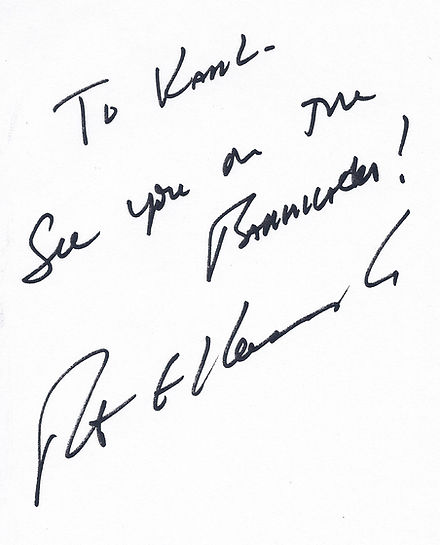 To Karl-
See you on the
Barricades!